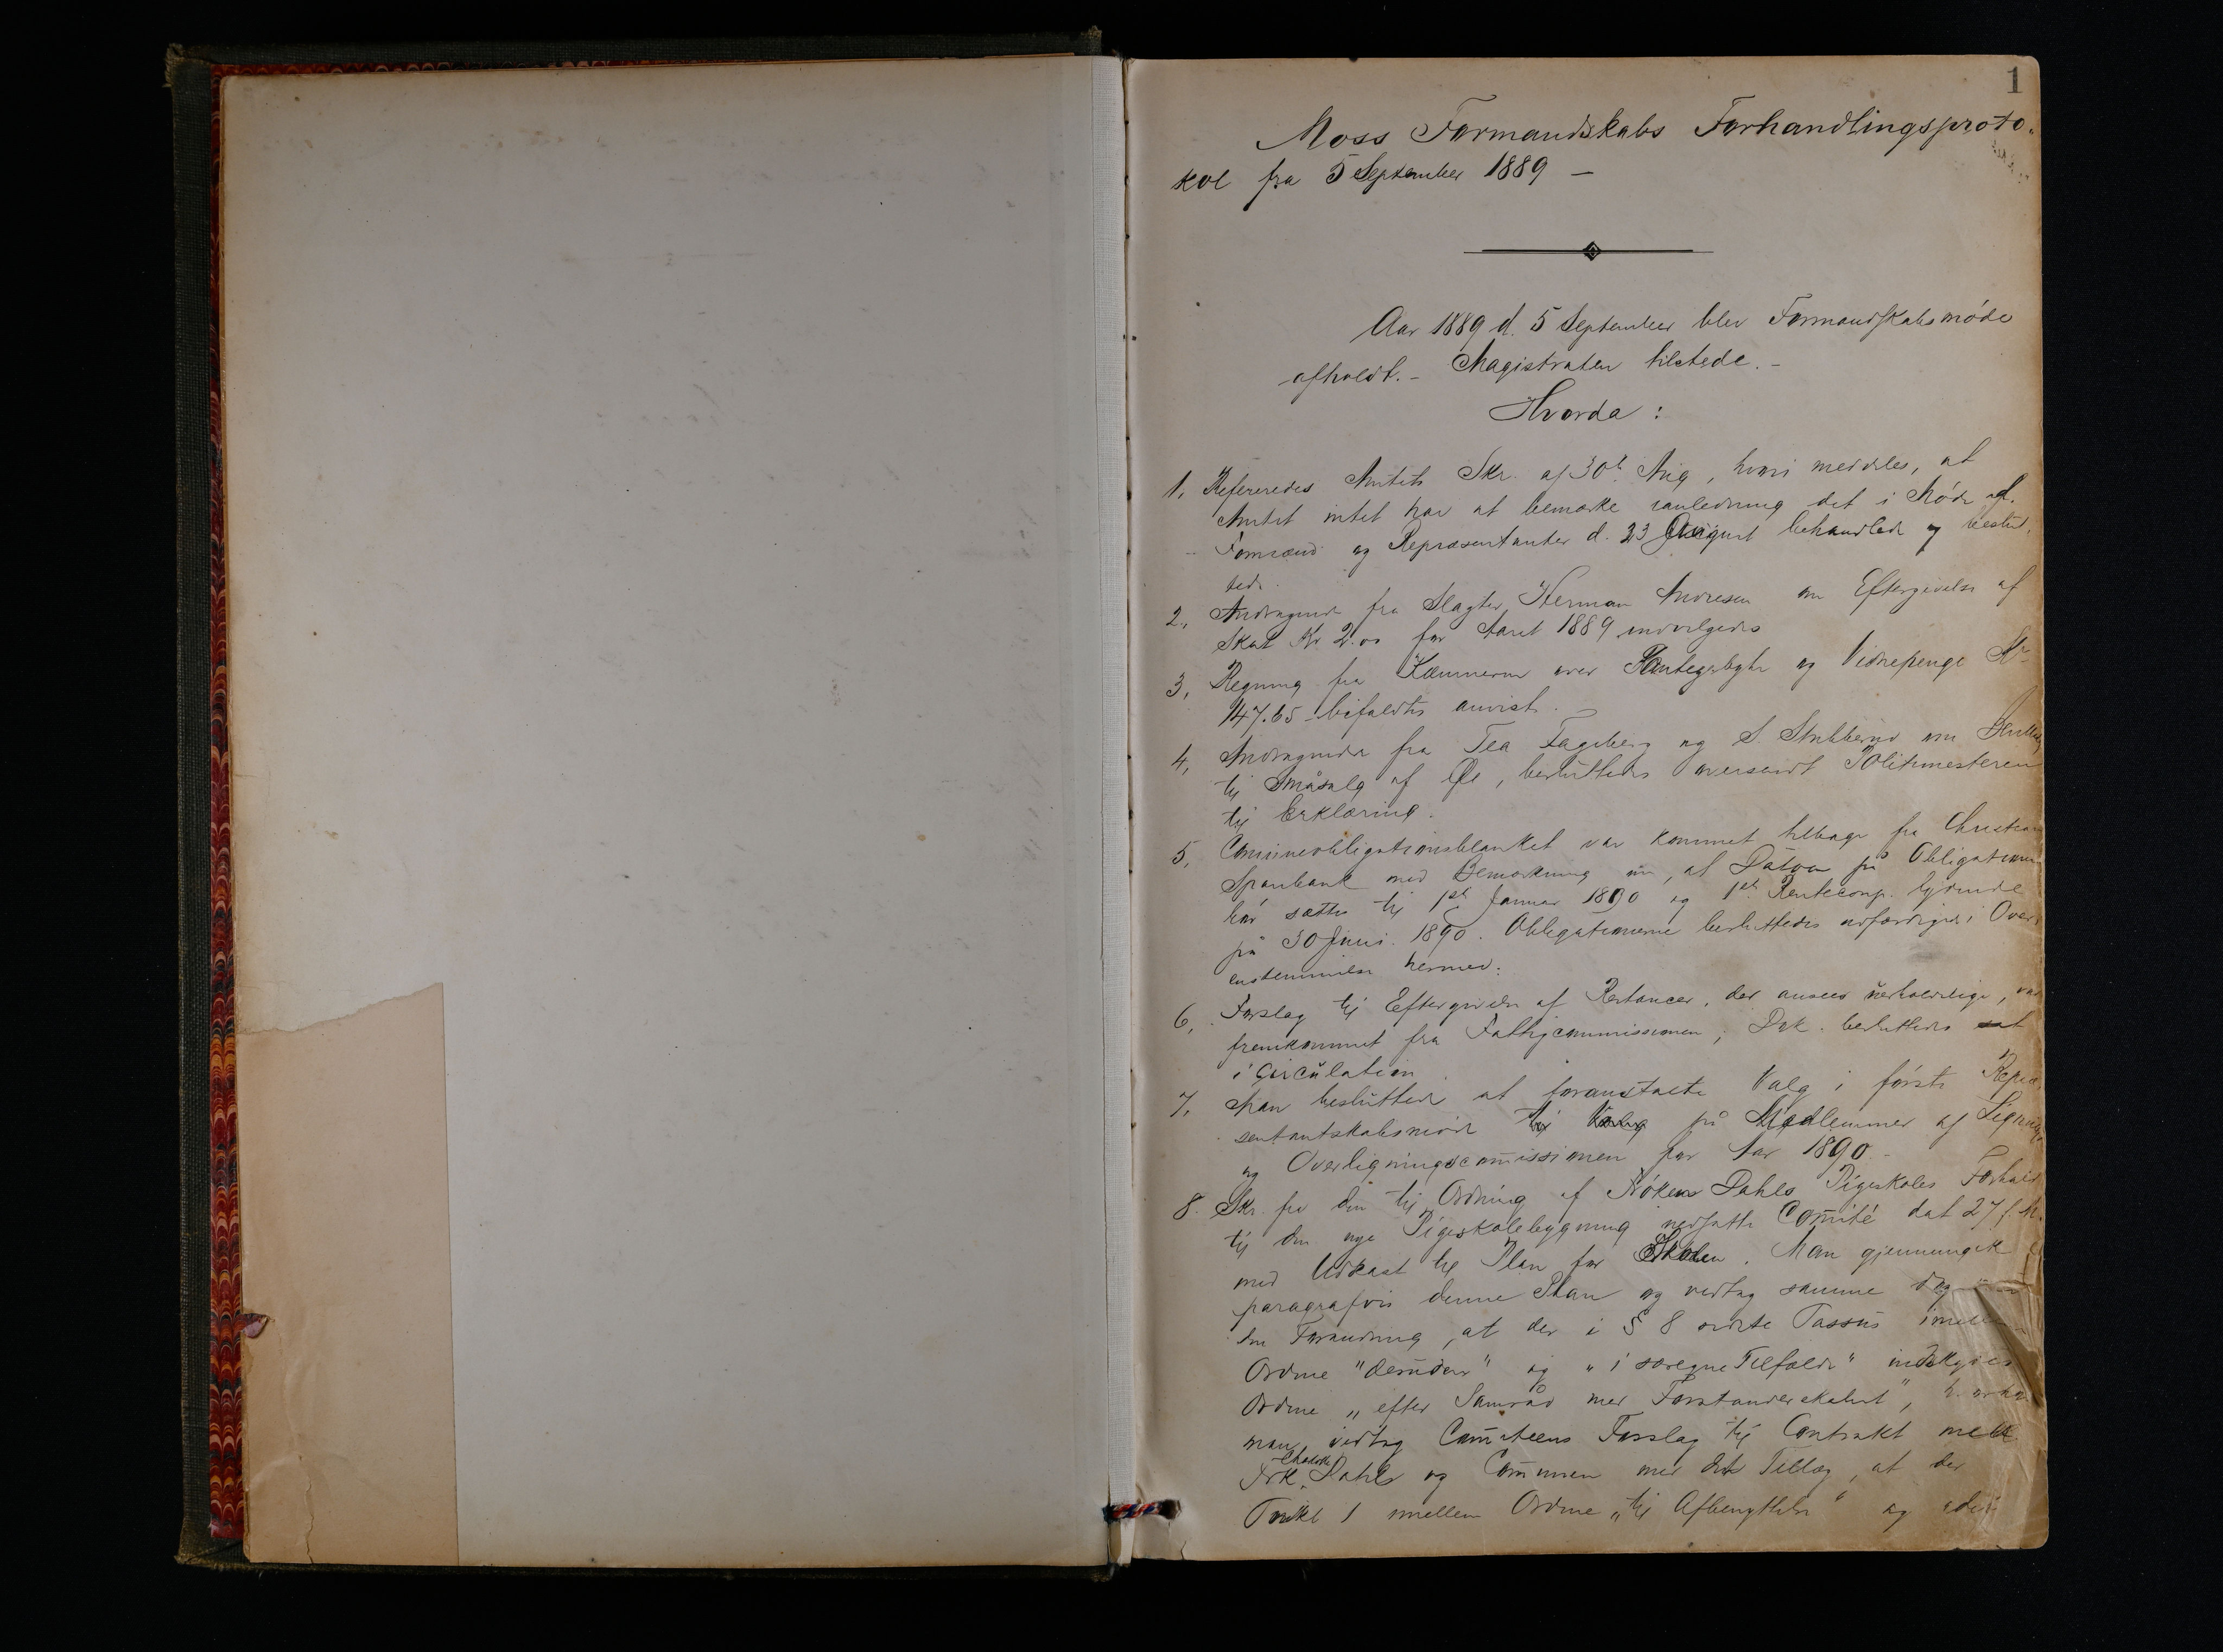 1
Moss Formandskabs Forhandlingsproto-
kol fra 5 September 1889 —
Aar 1889 d. 5 September blev Formandskabsmøde
afholdt. - Magistraten tilstede. -
Hvorda:
1, Refereredes Amtets Skr. af 30t Aug, hvori meddeles, at
Amtet intet har at bemærke ianledning det i Møde af
Formænd og Repræsentanter d. 23 August behandlede og beslut-
tede.
2, Andragende fra Slagter Herman Andresen om Eftergivelse af
Skat Kr 2.00 for Aaret 1889 indvilgedes
3, Regning fra Kæmneren over Pantegebyhr og Vidnepenge Kr
147.65 bifaldtes anvist.
4, Andragender fra Tea Fageberg og S. Stubberud om
til Småsalg af Øl, besluttedes oversendt Politimesteren
til Erklæring.
5, Communeobligationsblanket var kommet tilbage fra Christiania
Sparebank med Bemærkning om, at Datoen på Obligationen
bør sættes til 1ste Januar 1890 og 1ste Rentecoup. lydende
på 30 Juni 1890. Obligationerne besluttedes udfærdiget i Over-
ensstemmelse hermed.
6, Forslag til Eftergivelse af Restancer, der ansees uerholdelige, var
fremkommet fra Fattigcommissionen; Dok. besluttedes sat
i Circulation
7, Man besluttede at foranstalte Valg i første Repræ-
sentantskabsmøde på Medlemmer af Lignings
og Overligningscommissionen for Aar 1890 -
8. Skr. fra den til Ordning af Frøken Dahls Pigeskoles Forhold
til den nye Pigeskolebygning nedsatte Comité dat 27 f. M.
med Udkast til Plan for Skolen. Man gjennemgik
paragrafvis denne Plan og vedtog samme dog
den Forandring, at der i § 8 sidste Passus imellem
Ordene "desuden" og "i særegne Tilfælde" indskydes
Ordene „efter Samråd med Forstanderskabet",
man vedtog Comiteens Forslag til Contrakt mell
Frk. Dahls og Communen med det Tillæg, at der
Punkt 1 mellem Ordene „til Afbenyttelse" og